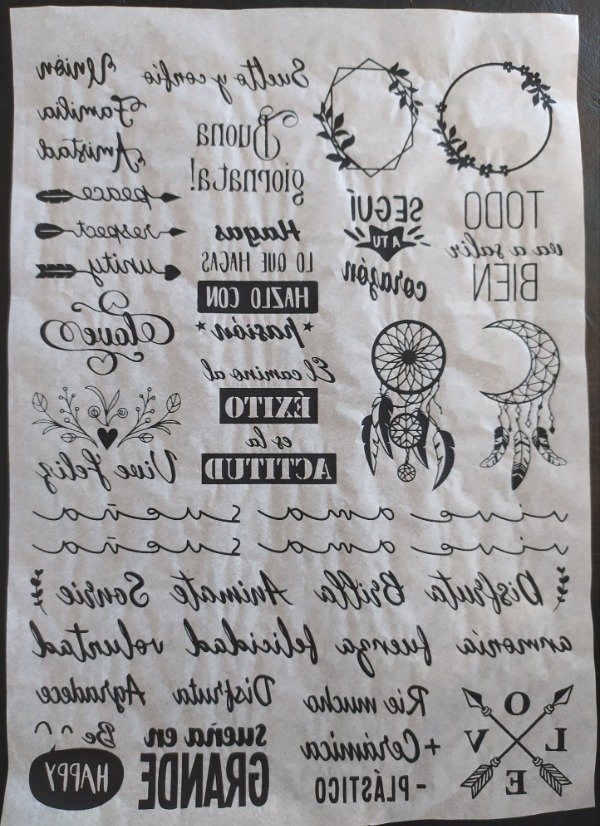 Suelto y confío
Unión
Familia
Amistad
Buona
giornata!
TODO
va a salir
BIEN
SEGUÍ
A TU
corazón
Hagas
LO QUE HAGAS
HAZLO CON
pasión
peace
respect
unity
love
El camino al
ÉXITO
es la
ACTITUD
Vive feliz
vive ama sueña
vive ama sueña
Disfruta Brilla Animate Sonrie
armonía fuerza felicidad voluntad
L O V E
Rie mucho
+ Cerámica
- PLÁSTICO
Disfruta Agradece
sueña en
GRANDE
Be
HAPPY